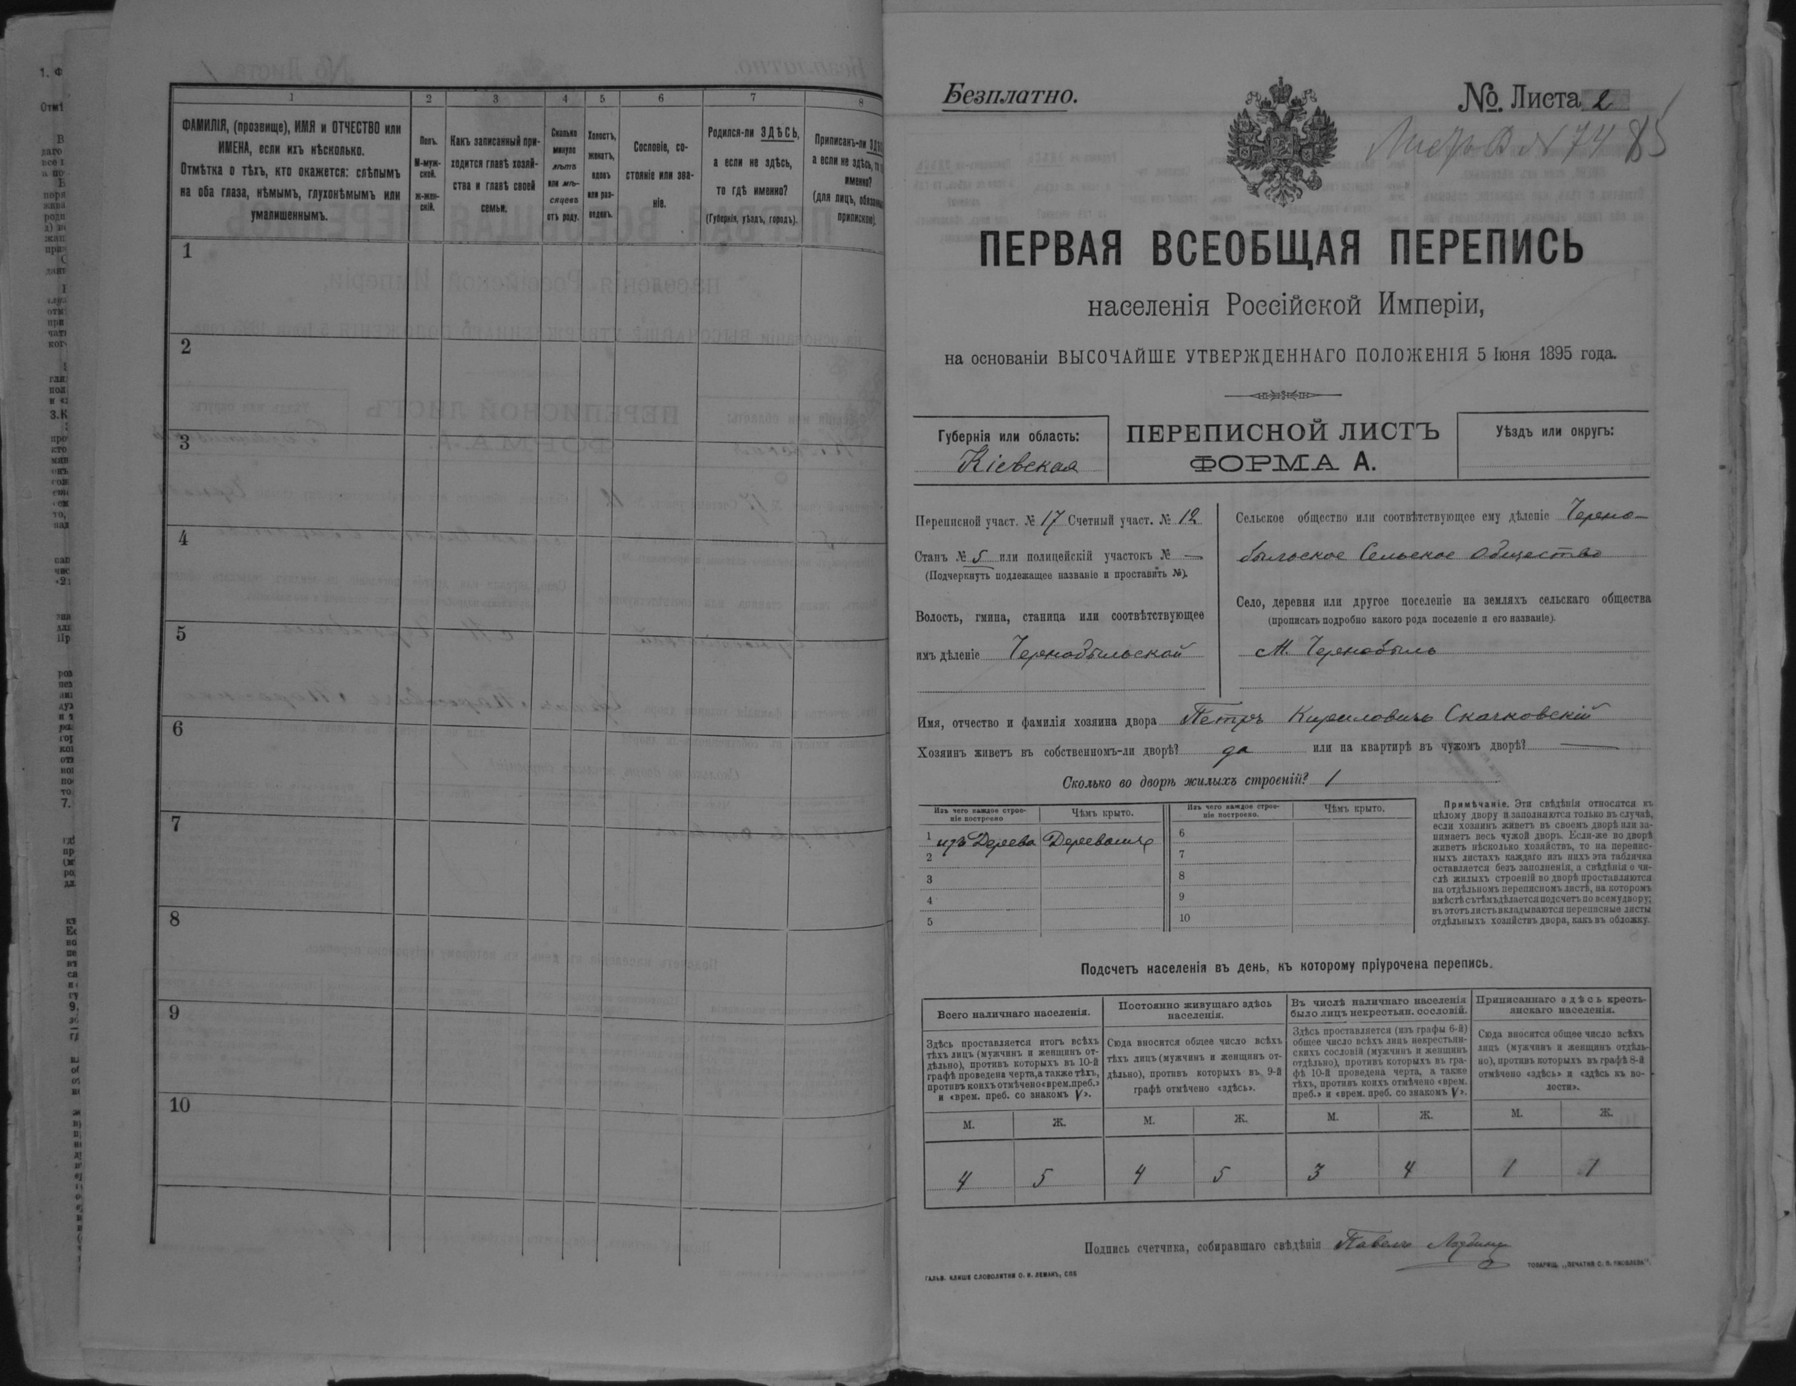 1 2 3 4 5 6 7 8
ФАМИЛІЯ, (прозвище), ИМЯ и ОТЧЕСТВО или
ИМЕНА, если ихъ нѣсколько.
Отмѣтка о тѣхъ, кто окажется: слѣпымъ
на оба глаза, нѣмымъ, глухонѣмымъ или
умалишеннымъ.
Полъ.
М-муж-
ской.
Ж-жен-
скій.
Какъ записанный при-
ходится главѣ хозяй-
ства и главѣ своей
семьи.
Сколько
минуло
лѣтъ
или мѣ-
сяцевъ
отъ роду.
Холостъ,
женатъ,
вдовъ
или раз-
веденъ.
Сословіе, со-
стояніе или зва-
ніе.
Родился-ли ЗДѢСЬ,
а если не здѣсь,
то гдѣ именно?
(Губернія, уѣздъ, городъ).
Приписанъ-ли
а если не здѣсь,
именно?
(для лицъ,
1
2
3
4
5
6
7
8
9
10
Безплатно.
№ Листа 2
74 85
ПЕРВАЯ ВСЕОБЩАЯ ПЕРЕПИСЬ
населенія Россійской Имперіи,
на основаніи ВЫСОЧАЙШЕ УТВЕРЖДЕННАГО ПОЛОЖЕНІЯ 5 Іюня 1895 года.
Губернія или область:
Кіевская
ПЕРЕПИСНОЙ ЛИСТЪ
ФОРМА А.
Уѣздъ или округъ:
Переписной участ. № 17 Счетный участ. № 12
Станъ № 5 или полицейскій участокъ № —
(Подчеркнуть подлежащее названіе и проставить №).
Волость, гмина, станица или соотвѣтствующее
имъ дѣленіе Чернобыльской
Сельское общество или соотвѣтствующее ему дѣленіе Черно-
быльское Сельское Общество
Село, деревня или другое поселеніе на земляхъ сельскаго общества
(прописать подробно какого рода поселеніе и его названіе).
М. Чернобыль
Имя, отчество и фамилія хозяина двора Петръ Кириловичъ Скачковскій
Хозяинъ живетъ въ собственномъ-ли дворѣ? да или на квартирѣ въ чужомъ дворѣ? —
Сколько во дворѣ жилыхъ строеній? 1
Изъ чего каждое строе-
ніе построено
Чѣмъ крыто.
Изъ чего каждое строе-
ніе построено.
Чѣмъ крыто.
1 изъ Дерева
2
3
4
5
6
7
8
9
10
Примѣчаніе. Эти свѣдѣнія относятся къ
цѣлому двору и заполняются только въ случаѣ,
если хозяинъ живетъ въ своемъ дворѣ или за-
нимаетъ весь чужой дворъ. Если-же во дворѣ
живетъ нѣсколько хозяйствъ, то на перепис-
ныхъ листахъ каждаго изъ нихъ эта табличка
оставляется безъ заполненія, а свѣдѣнія о чи-
слѣ жилыхъ строеній во дворѣ проставляются
на отдѣльномъ переписномъ листѣ, на которомъ
вмѣстѣ съ тѣмъ дѣлается подсчетъ по всему двору;
въ этотъ листъ вкладываются переписные листы
отдѣльныхъ хозяйствъ двора, какъ въ обложку.
Подсчетъ населенія въ день, къ которому пріурочена перепись.
Всего наличнаго населенія.
Здѣсь проставляется итогъ всѣхъ
тѣхъ лицъ (мужчинъ и женщинъ от-
дѣльно), противъ которыхъ въ 10-й
графѣ проведена черта, а также тѣхъ,
противъ коихъ отмѣчено «врем. преб.»
и «врем. преб. со знакомъ V».
Постоянно живущаго здѣсь
населенія.
Сюда вносится общее число всѣхъ
тѣхъ лицъ (мужчинъ и женщинъ от-
дѣльно), противъ которыхъ въ 9-й
графѣ отмѣчено «здѣсь».
Въ числѣ наличнаго населенія
было лицъ некрестьян. сословій.
Здѣсь проставляется (изъ графы 6-й)
общее число всѣхъ лицъ некрестьян-
скихъ сословій (мужчинъ и женщинъ
отдѣльно), противъ которыхъ въ гра-
фѣ 10-й проведена черта, а также
тѣхъ, противъ коихъ отмѣчено «врем.
преб.» и «врем. преб. со знакомъ V».
Приписаннаго здѣсь кресть-
янскаго населенія.
Сюда вносится общее число всѣхъ
лицъ (мужчинъ и женщинъ отдѣль-
но), противъ которыхъ въ графѣ 8-й
отмѣчено «здѣсь» и «здѣсь въ во-
лости».
М. Ж. М. Ж. М. Ж. М. Ж.
4 5 4 5 3 4 1 1
Подпись счетчика, собиравшаго свѣдѣнія Павелъ
ГАЛЬВ. КЛИШЕ СЛОВОЛИТНИ О. И. ЛЕМАНЪ, СПБ